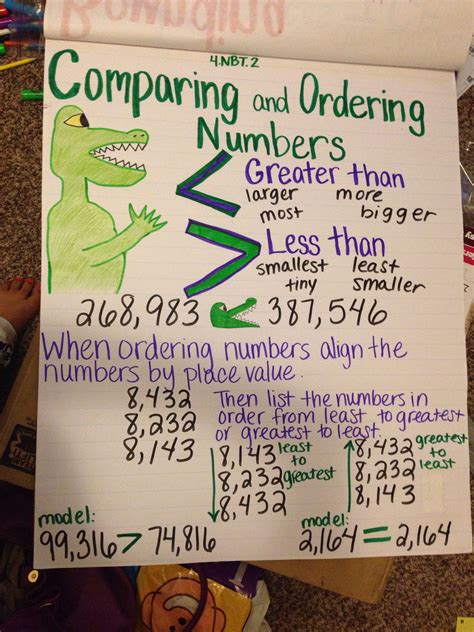 4.NBT.2
Comparing and Ordering
Numbers
< Greater than
larger more
most bigger
> Less than
smallest least
tiny smaller
268,983 387,546
When ordering numbers align the
numbers by place value.
8,432
8,232
8,143
Then list the numbers in
order from least to greatest
or greatest to least.
8,143 least
to
8,232 greatest
8,432
8,432 greatest
to
8,232 least
8,143
model:
99,316 > 74,816
model:
2,164 = 2,164